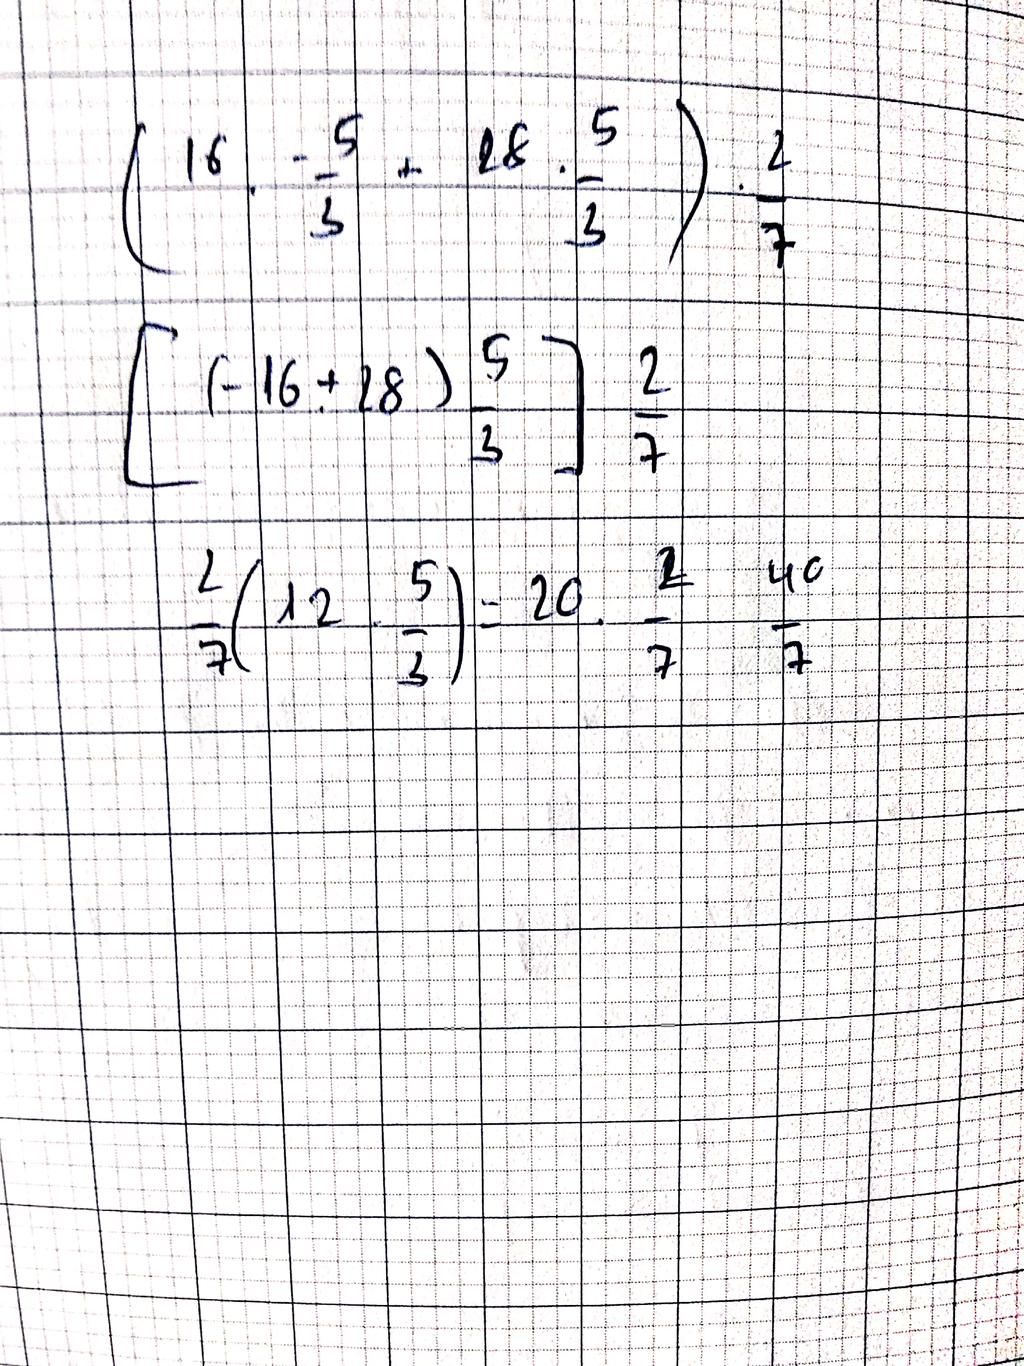 ( 16 · -5/3 + 28 · 5/3 ) · 2/7
[ (-16 + 28) 5/3 ] 2/7
2/7 ( 12 · 5/3 ) = 20 · 2/7 40/7